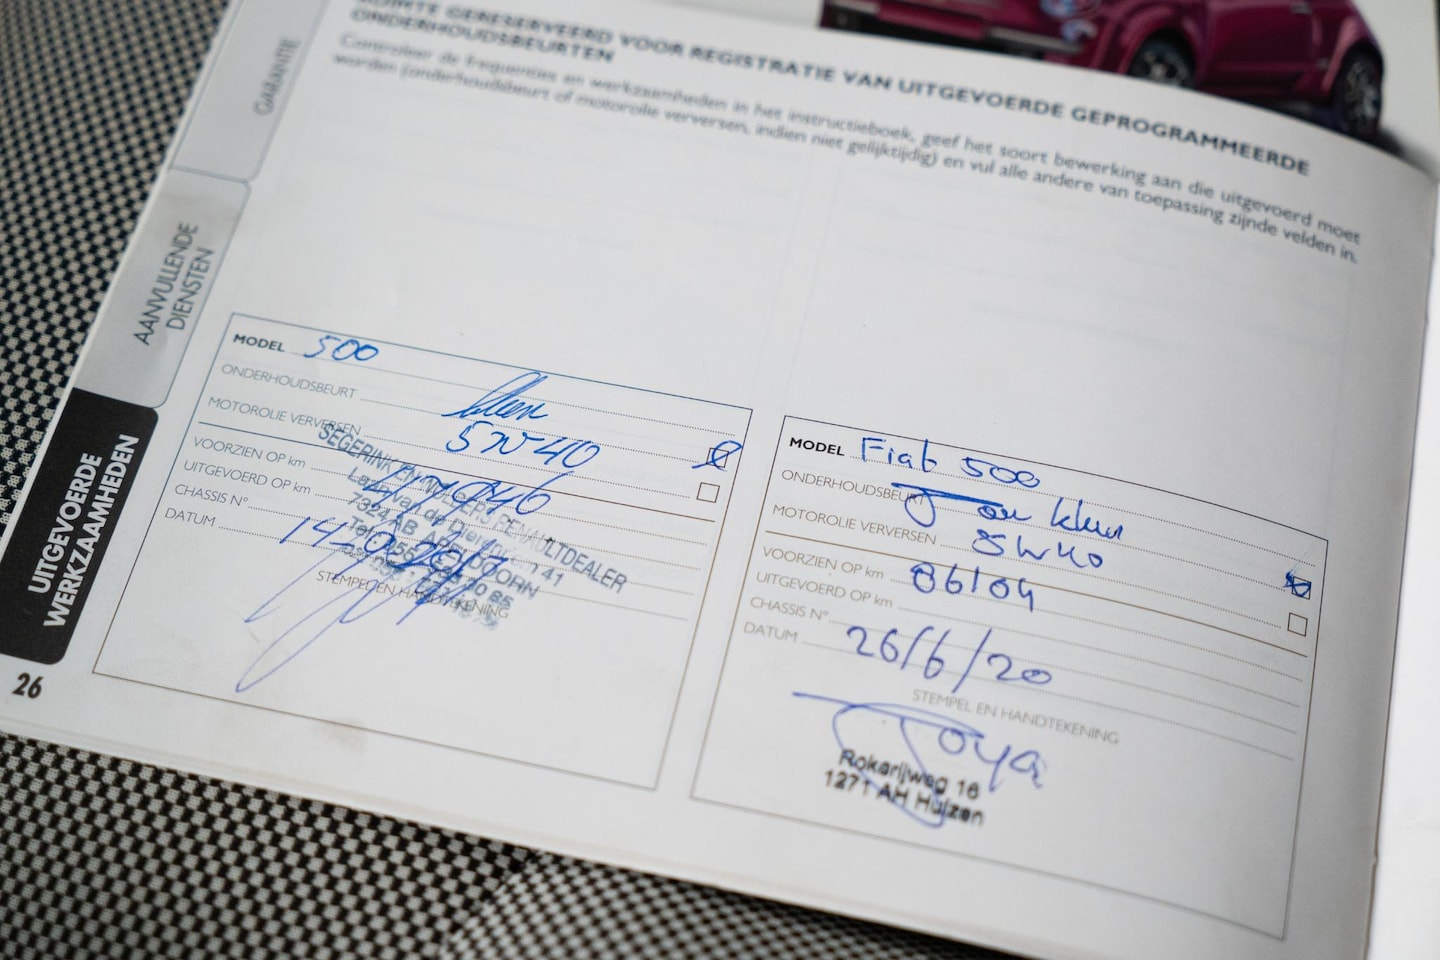 RUIMTE GERESERVEERD VOOR REGISTRATIE VAN UITGEVOERDE GEPROGRAMMEERDE
ONDERHOUDSBEURTEN
Controleer de frequenties en werkzaamheden in het instructieboek, geef het soort bewerking aan die uitgevoerd moet
worden (onderhoudsbeurt of motorolie verversen, indien niet gelijktijdig) en vul alle andere van toepassing zijnde velden in.
GARANTIE
AANVULLENDE
DIENSTEN
UITGEVOERDE
WERKZAAMHEDEN
26
MODEL 500
ONDERHOUDSBEURT
MOTOROLIE VERVERSEN 5W40
VOORZIEN OP km
UITGEVOERD OP km
CHASSIS N°
DATUM
SEGERINK EN MULDERS RENAULTDEALER
Laan van de Dierenriem 41
7324 AB APELDOORN
STEMPEL EN HANDTEKENING
MODEL Fiat 500
ONDERHOUDSBEURT
MOTOROLIE VERVERSEN 5W40
VOORZIEN OP km 86104
UITGEVOERD OP km
CHASSIS N°
DATUM 26/6/20
STEMPEL EN HANDTEKENING
Rokerijweg 16
1271 AH Huizen